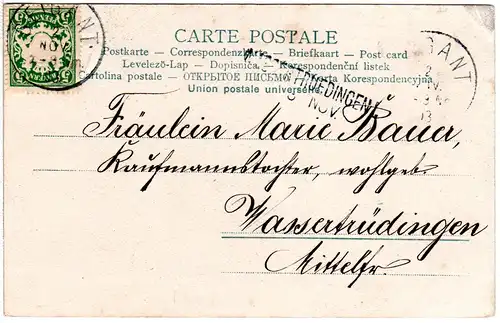 CARTE POSTALE
Postkarte – Correspondenzkarte – Briefkaart – Post card
Levelező-Lap – Dopisnica – Korespondenční listek
Cartolina postale – ОТКРЫТОЕ ПИСЬМО – Karta Korespondencyjna
Union postale universelle
NOV
NOV.
Fräulein Marie Bauer,
Kaufmannstochter, wohlgeb.
Wassertrüdingen
Mittelfr.